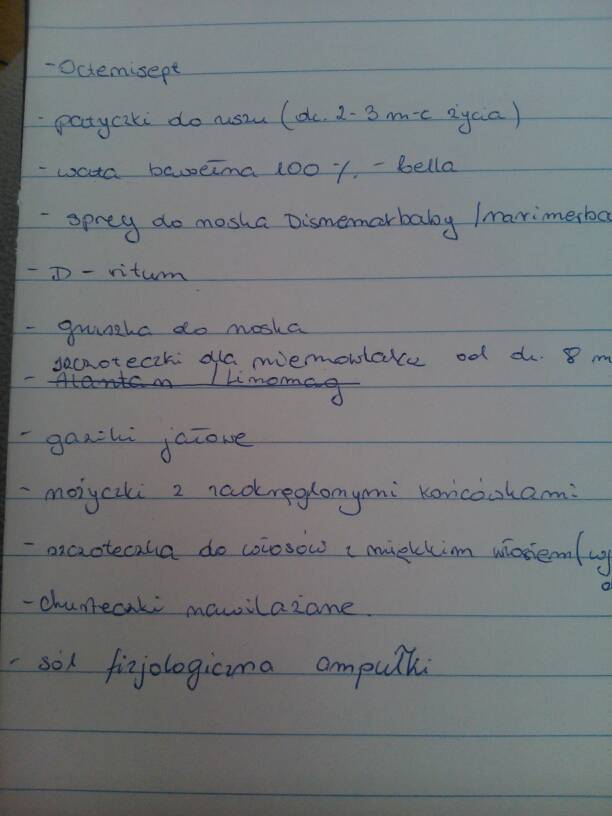 - Octemisept
- patyczki do uszu (dc. 2-3 m-c życia)
- wata bawełna 100 % - bella
- sprey do noska Dismemarbaby / marimerba
- D - vitum
- gruszka do noska
szczoteczki dla niemowlaka od dc. 8 m
- Alantan / Linomag
- gaziki jałowe
- nożyczki z zaokrąglonymi końcówkami
- szczoteczka do włosów z miękkim włosiem (wy
- chusteczki nawilażane.
- sól fizjologiczna ampułki